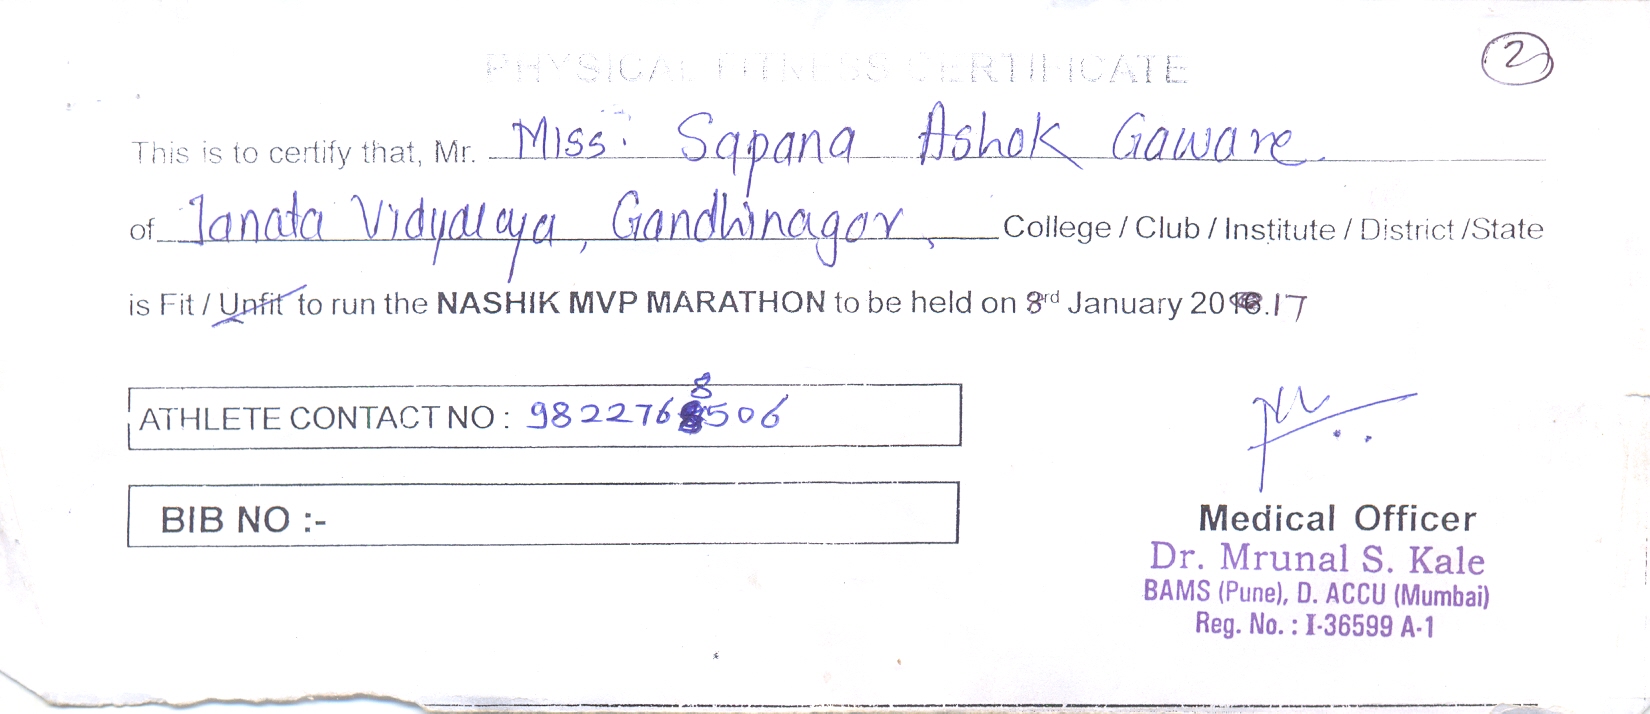 PHYSICAL FITNESS CERTIFICATE
2
This is to certify that, Mr. Miss. Sapana Ashok Gaware
of Janata Vidyalaya, Gandhinagar, College / Club / Institute / District /State
is Fit / Unfit to run the NASHIK MVP MARATHON to be held on 8rd January 2016.17
8
ATHLETE CONTACT NO : 9822768506
BIB NO :-
Medical Officer
Dr. Mrunal S. Kale
BAMS (Pune), D. ACCU (Mumbai)
Reg. No. : I-36599 A-1